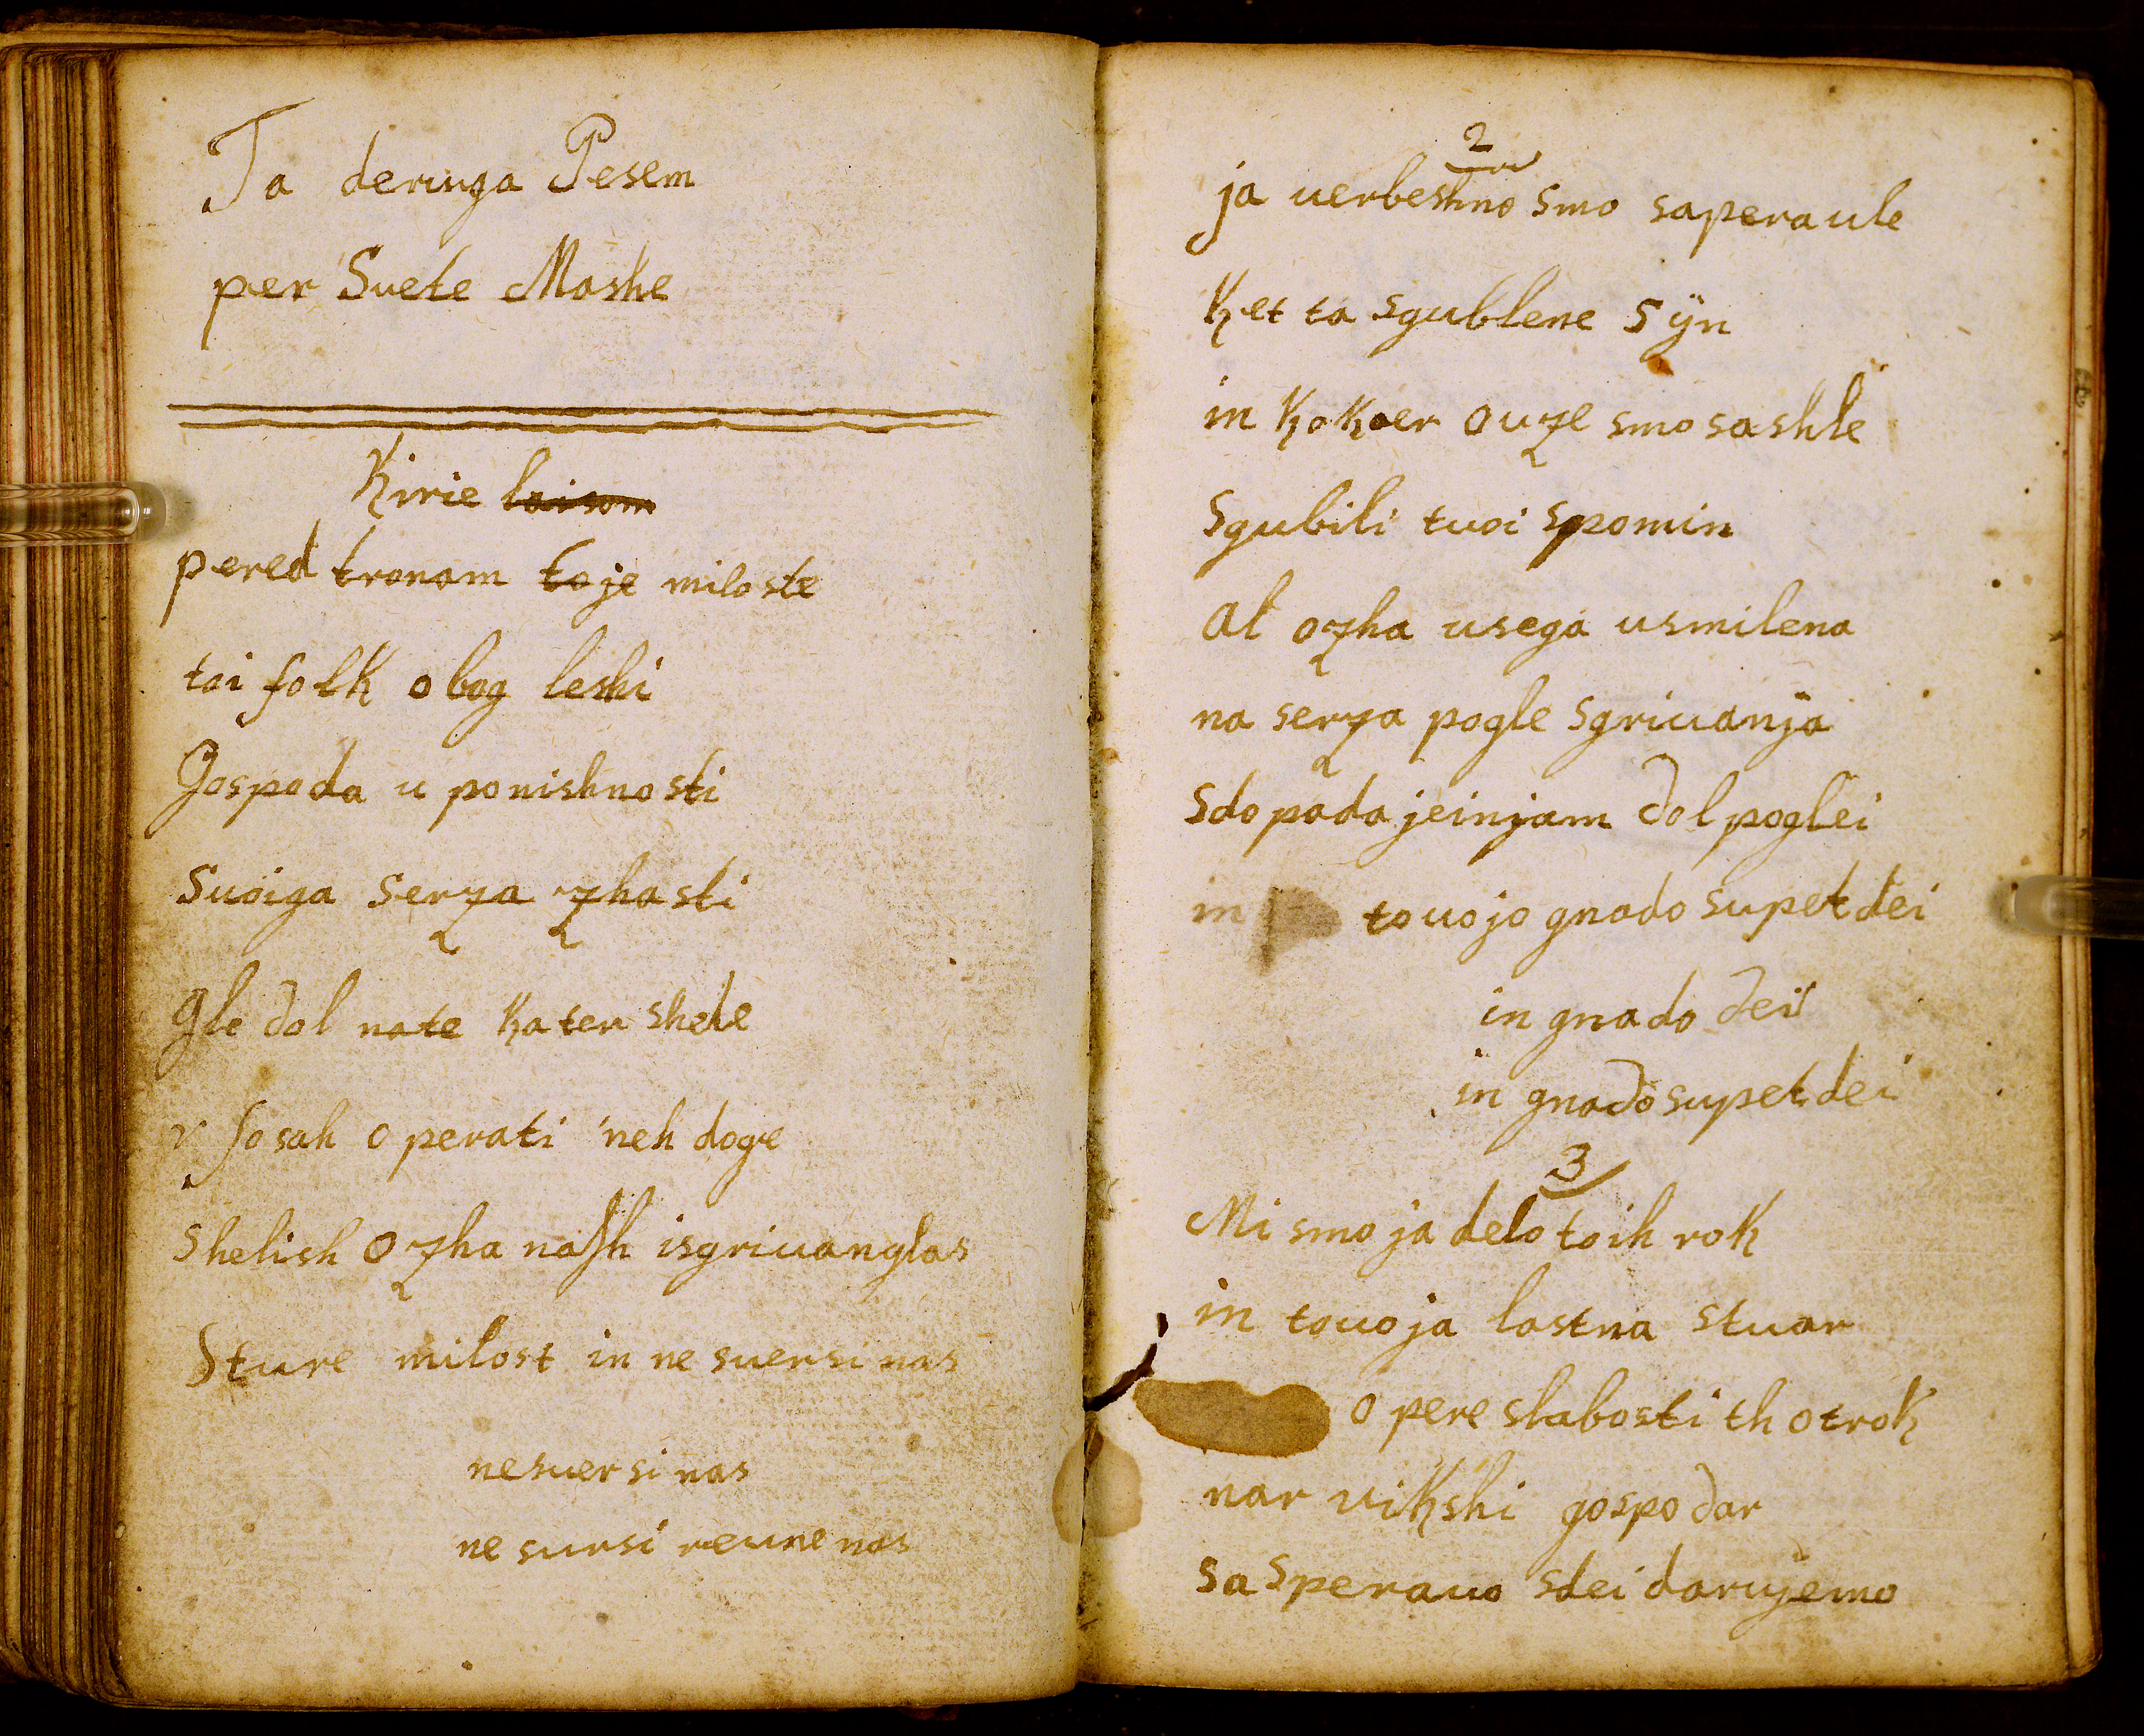 Ta deruga Pesem
per Svete Mashe
Kirie laisom
pered tronam toje miloste
toi folk o bog leshi
Gospoda u ponishnosti
Suoiga serza zhasti
Gle dol na te kateru shele
v sosah operati neh doge
Shelish Ozha nash isgrivanglas
Sture milost in ne suersi nas
ne suersi nas
ne sursi reune nas
2
ja uerbeshno smo saperaule
Ket ta sgublene sÿn
in Kokoer ouze smo sashle
Sgubili tuoi spomin
al ozha usega usmilena
na serza pogle sgriuanja
Sdopadajeinjam dol poglei
in touojo gnado supet dei
in gnado dei
in gnado supet dei
3
Mi smo ja delo toih rok
in touoja lastna stuar
O pere slabosti th otrok
nar vikshi gospodar
Sa sperauo sdei darujemo